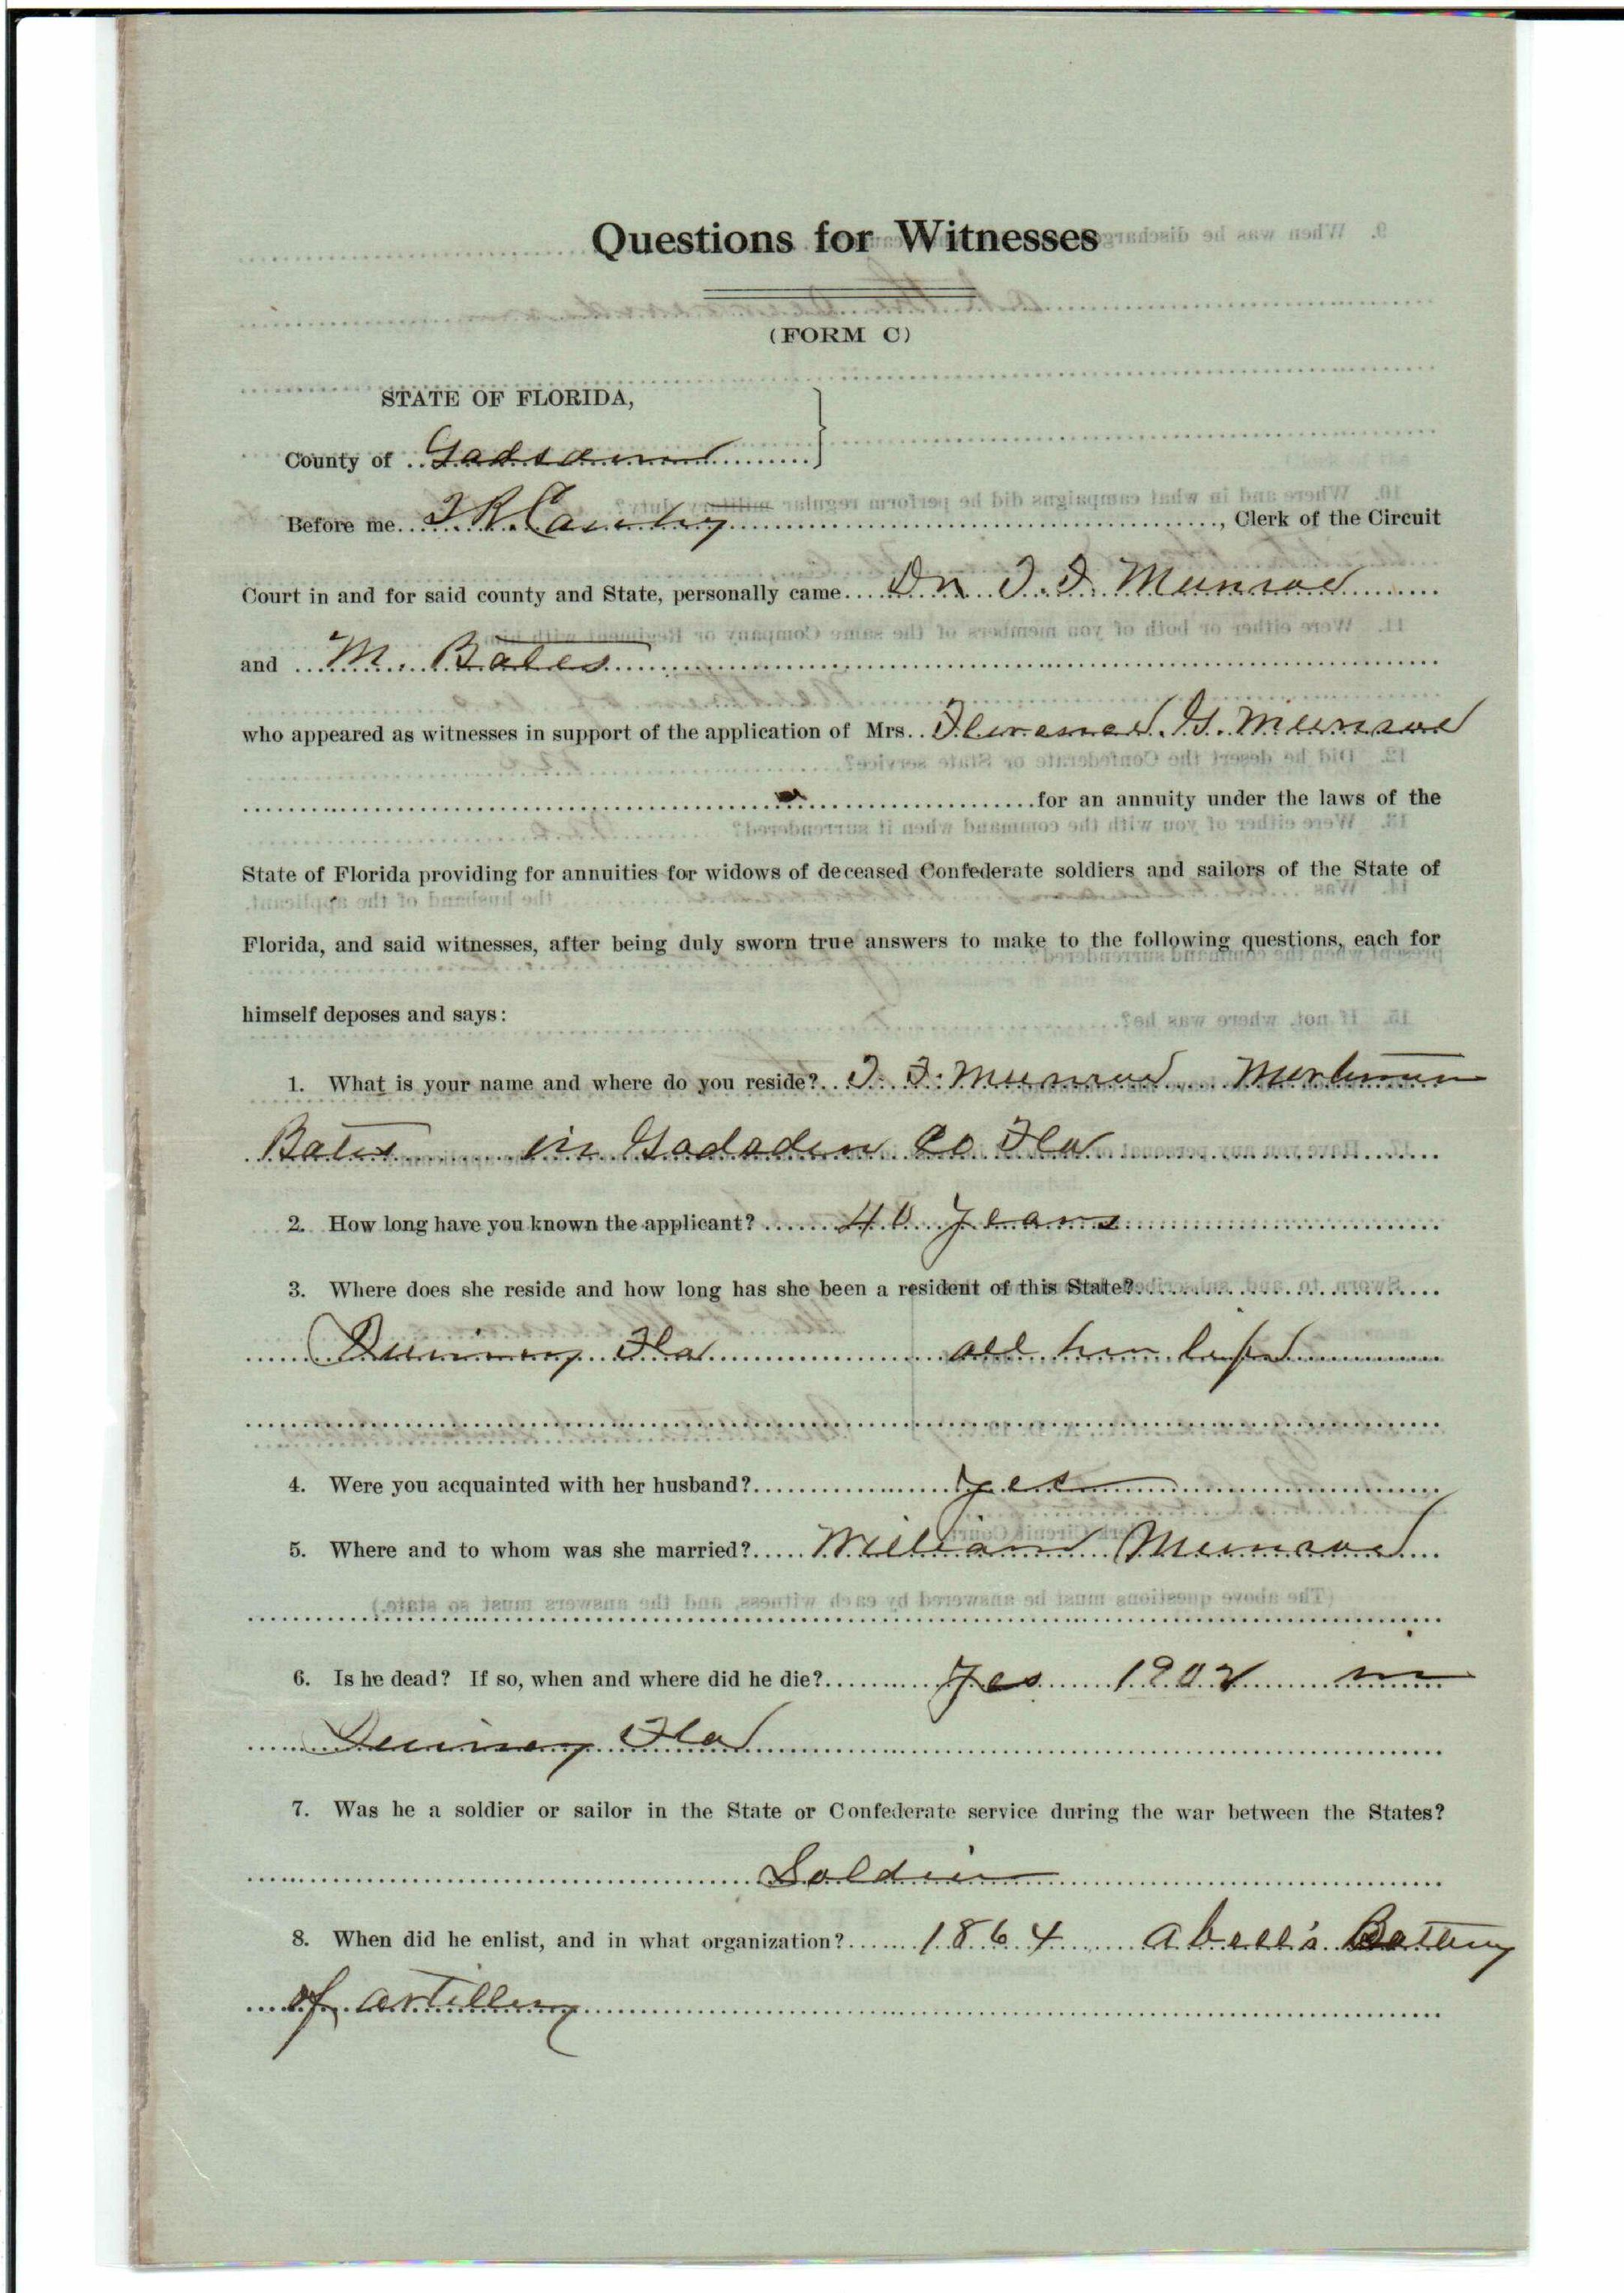 Questions for Witnesses
(FORM C)
STATE OF FLORIDA,
County of Gadsden
Before me, Clerk of the Circuit
Court in and for said county and State, personally came Dr. Munroe
and M. Bates
who appeared as witnesses in support of the application of Mrs. Florence G. Munroe
for an annuity under the laws of the
State of Florida providing for annuities for widows of deceased Confederate soldiers and sailors of the State of
Florida, and said witnesses, after being duly sworn true answers to make to the following questions, each for
himself deposes and says:
1. What is your name and where do you reside? Munroe
Bates in Gadsden Co Fla
2. How long have you known the applicant? 40 years
3. Where does she reside and how long has she been a resident of this State?
Quincy Fla all her life
4. Were you acquainted with her husband? yes
5. Where and to whom was she married? William Munroe
6. Is he dead? If so, when and where did he die? Yes 1902 in
Quincy Fla
7. Was he a soldier or sailor in the State or Confederate service during the war between the States?
Soldier
8. When did he enlist, and in what organization? 1864 Abell's Battery
of artillery